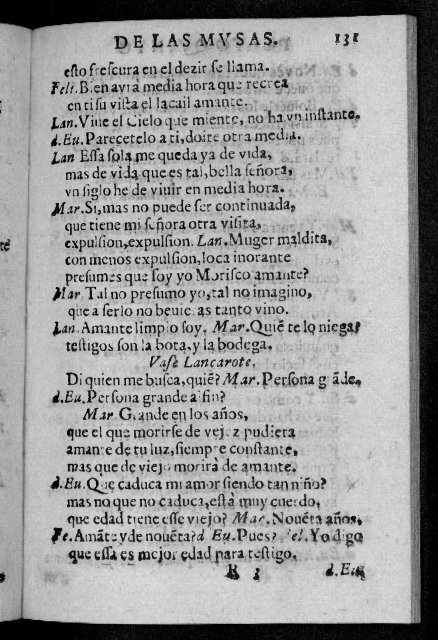 DE LAS MVSAS. 131
esto frescura en el dezir se llama.
Feli. Bien avrà media hora que recrea
en ti su vista el lacail amante.
Lan. Viue el Cielo que miente, no ha vn instante.
d.Eu. Parecetelo a ti, doite otra media.
Lan Essa sola me queda ya de vida,
mas de vida que es tal, bella señora,
vn siglo he de viuir en media hora.
Mar. Si, mas no puede ser continuada,
que tiene mi señora otra visita,
expulsion, expulsion. Lan. Muger maldita,
con menos expulsion, loca inorante
presumes que soy yo Morisco amante?
Mar. Tal no presumo yo, tal no imagino,
que a serlo no beuieras tanto vino.
Lan. Amante limpio soy. Mar. Quiẽ te lo niega?
testigos son la bota, y la bodega.
Vase Lançarote.
Di quien me busca, quiẽ? Mar. Persona grãde.
d.Eu. Persona grande a fin?
Mar. Grande en los años,
que el que morirse de vejez pudiera
amante de tu luz, siempre constante,
mas que de viejo morirà de amante.
d.Eu. Que caduca mi amor siendo tan niño?
mas no que no caduca, està muy cuerdo,
que edad tiene esse viejo? Mar. Nouẽta años.
Fe. Amãte y de nouẽta? d Eu. Pues? Fel. Yo digo
que essa es mejor edad para testigo.
R 3 d.Eu.